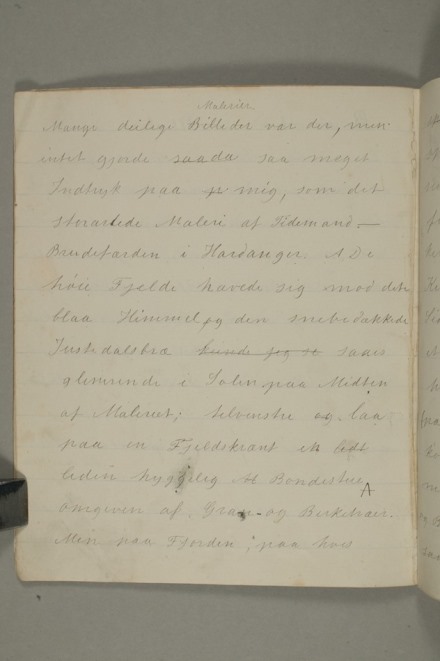 Malerier.
Mange deilige Billeder var der, men
intet gjorde saada saa meget
Indtryk paa mig, som det
storartede Maleri af Tidemand –
Brudefærden i Hardanger. A De
høie Fjelde hævede sig mod den
blaa Himmel og den snebedækkede
Justedalsbræ kunde jeg se saaes
glimrende i Solen paa Midten
af Maleriet; tilvenstre og laa
paa en Fjeldskrænt en lidt
liden hyggelig Bondestue
omgiven af Gran- og Birketræer.
Men paa Fjorden, paa hvis